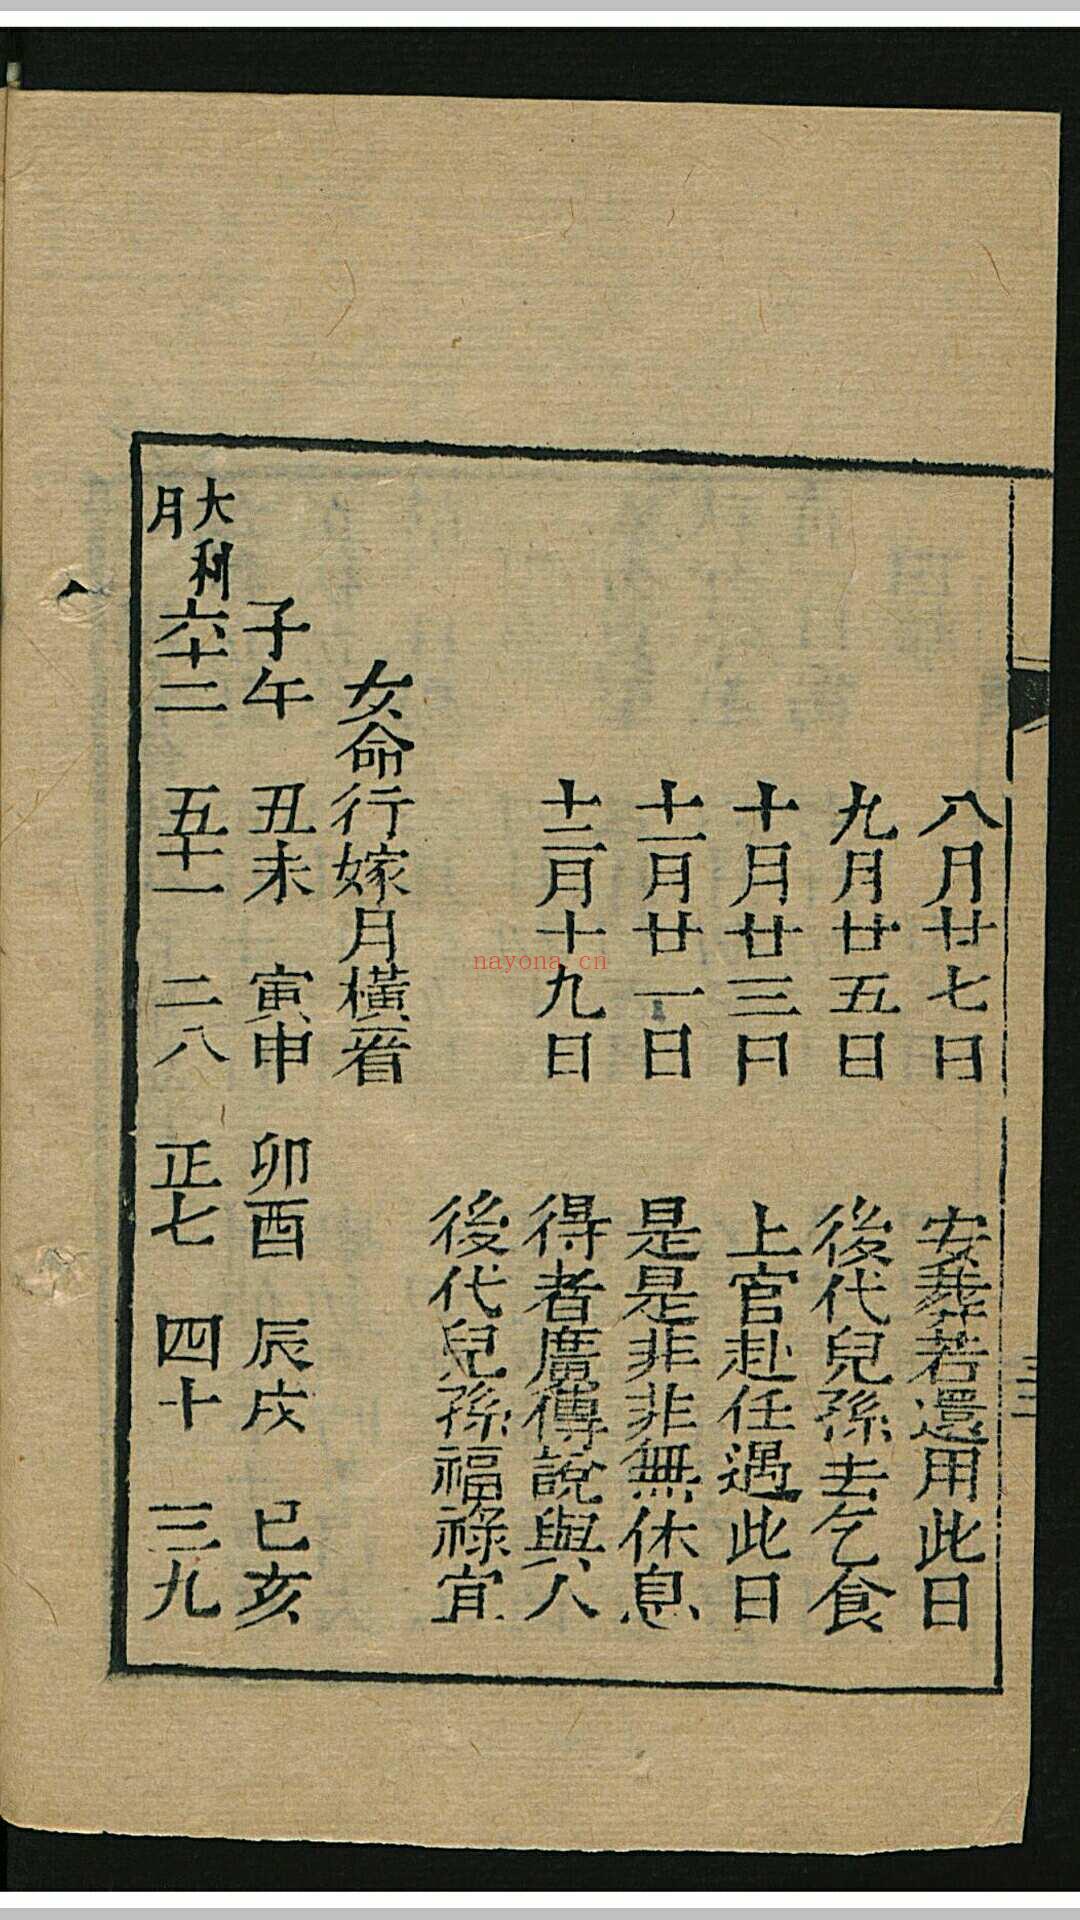 八月廿七日 安葬若還用此日
九月廿五日 後代兒孫去乞食
十月廿三日 上官赴任遇此日
十一月廿一日 是是非非無休息
十二月十九日 得者廣傳說與人
後代兒孫福祿宜
女命行嫁月橫看
子午 丑未 寅申 卯酉 辰戌 巳亥
大利月 六十二 五十一 二八 正七 四十 三九
nayona.cn